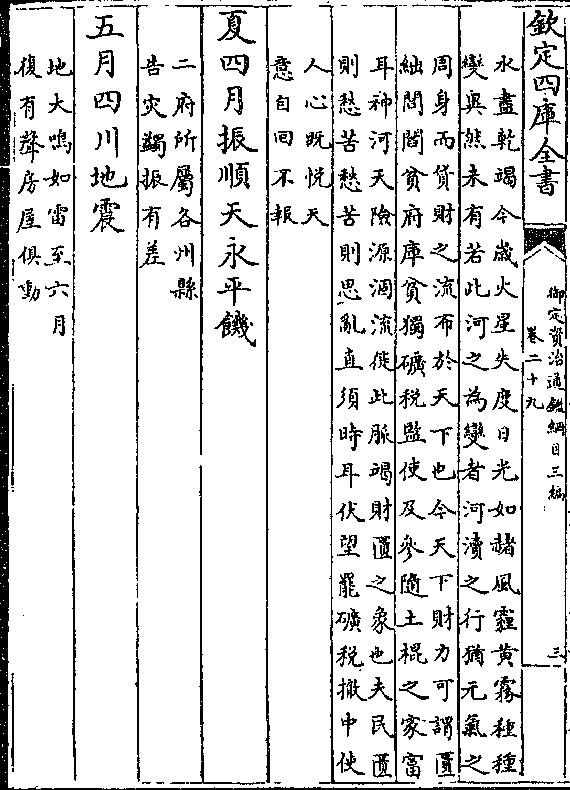 欽定四庫全書
御定資治通鑑綱目三編
卷二十九
三
水盡乾竭今歲火星失度日光如赭風霾黃霧種種
變異然未有若此河之為變者河瀆之行猶元氣之
周身而貨財之流布於天下也今天下財力可謂匱
絀閭閻貧府庫貧獨礦稅監使及參隨土棍之家富
耳神河天險源涸流徙此脈竭財匱之象也夫民匱
則愁苦愁苦則思亂直須時耳伏望罷礦稅撤中使
人心既悅天
意自回不報
夏四月振順天永平饑
二府所屬各州縣
告災蠲振有差
五月四川地震
地大鳴如雷至六月
復有聲房屋俱動